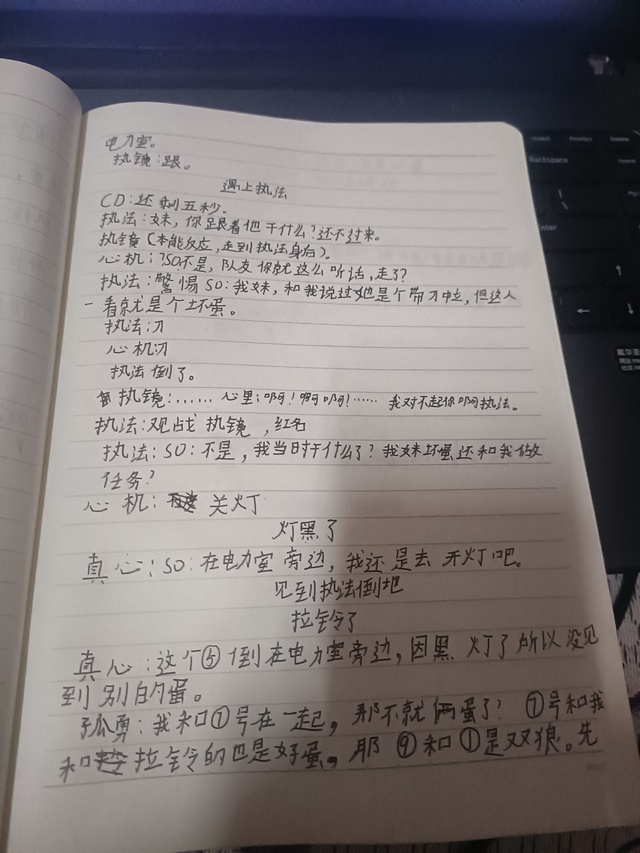 电力室。
执镜：跟。
遇上执法
CD：还剩五秒。
执法：妹，你跟着他干什么？还不过来。
执镜（本能反应，走到执法身后）。
心机：？SO：不是，队友你就这么听话，走了？
执法：警惕 SO：我妹，和我说过她是个带刀中立，但这人
一看就是个坏蛋。
执法：刀
心机：刀
执法倒了。
执镜：…… 心里：啊！啊啊！…… 我对不起你啊执法。
执法：观战 执镜，红名
执法：SO：不是，我当时干什么了？我妹坏蛋还和我做
任务？
心机： 关灯
灯黑了
真心：SO：在电力室旁边，我还是去开灯吧。
见到执法倒地
拉铃了
真心：这个⑤倒在电力室旁边，因黑灯了所以没见
到别的蛋。
孤勇：我和⑦号在一起，那不就俩蛋了？⑦号和我
和 拉铃的也是好蛋，那⑨和①是双狼。先
Backspace